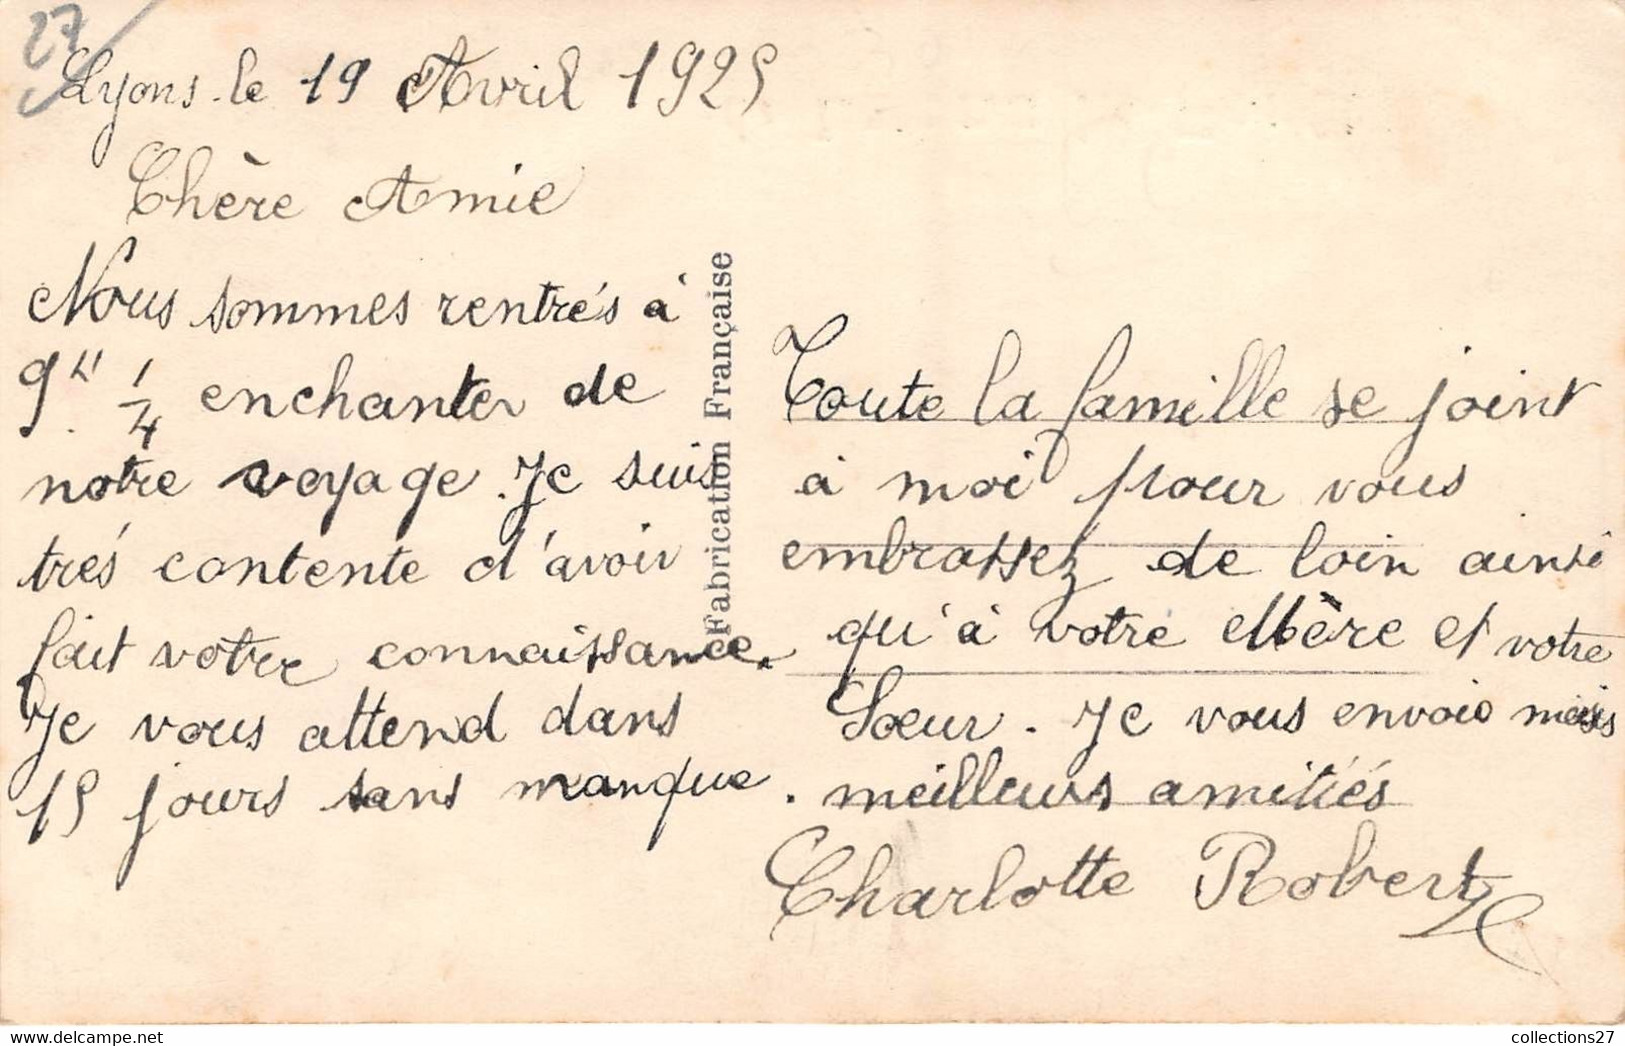 27
Lyons le 19 Avril 1925
Chère Amie
Nous sommes rentrés à
9h 1/4 enchanter de
notre voyage. Je suis
trés contente d'avoir
fait votre connaissance.
Je vous attend dans
15 jours sans manque.
Fabrication Française
Toute la famille se joint
à moi pour vous
embrassez de loin ainsi
qu'à votre Mère et votre
Sœur. Je vous envoie mes
meilleurs amitiés
Charlotte Robert
collections27